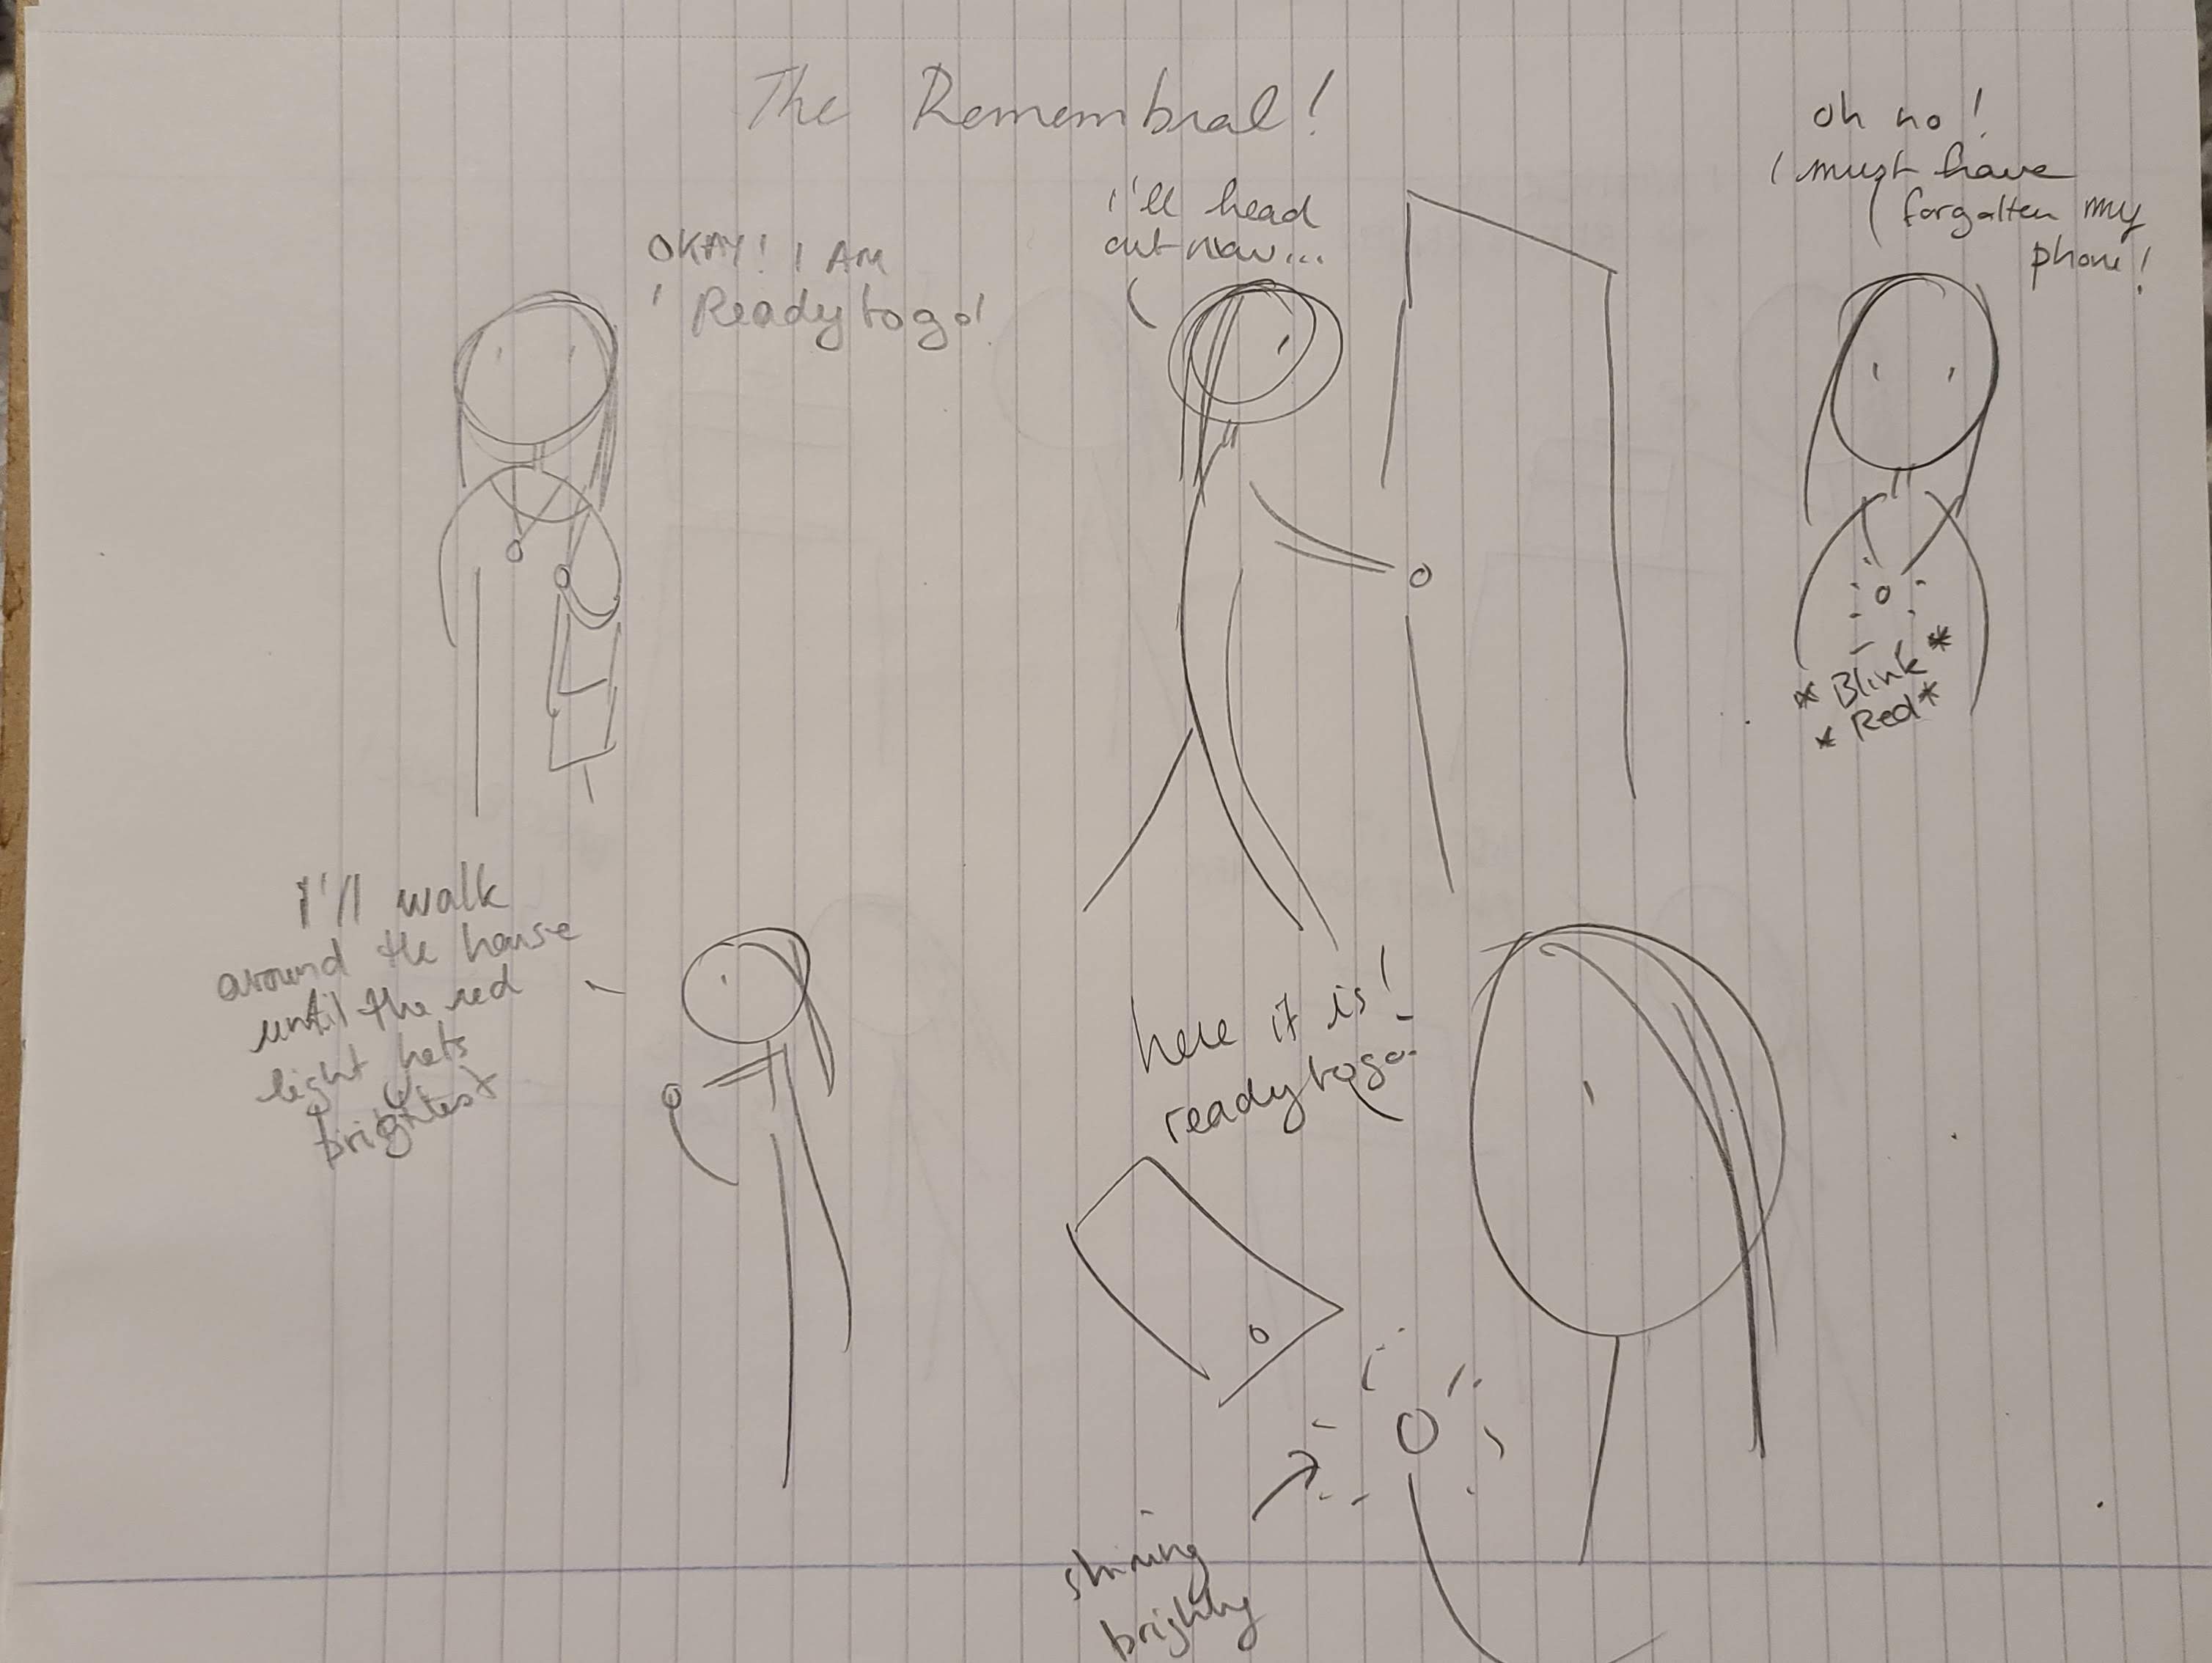 The Remembral!
OKAY! I AM
Ready to go!
i'll head
out now...
oh no!
I must have
forgotten my
phone!
* Blink *
* Red *
I'll walk
around the house
until the red
light hets
brightest
here it is!
ready to go-
shining
brightly